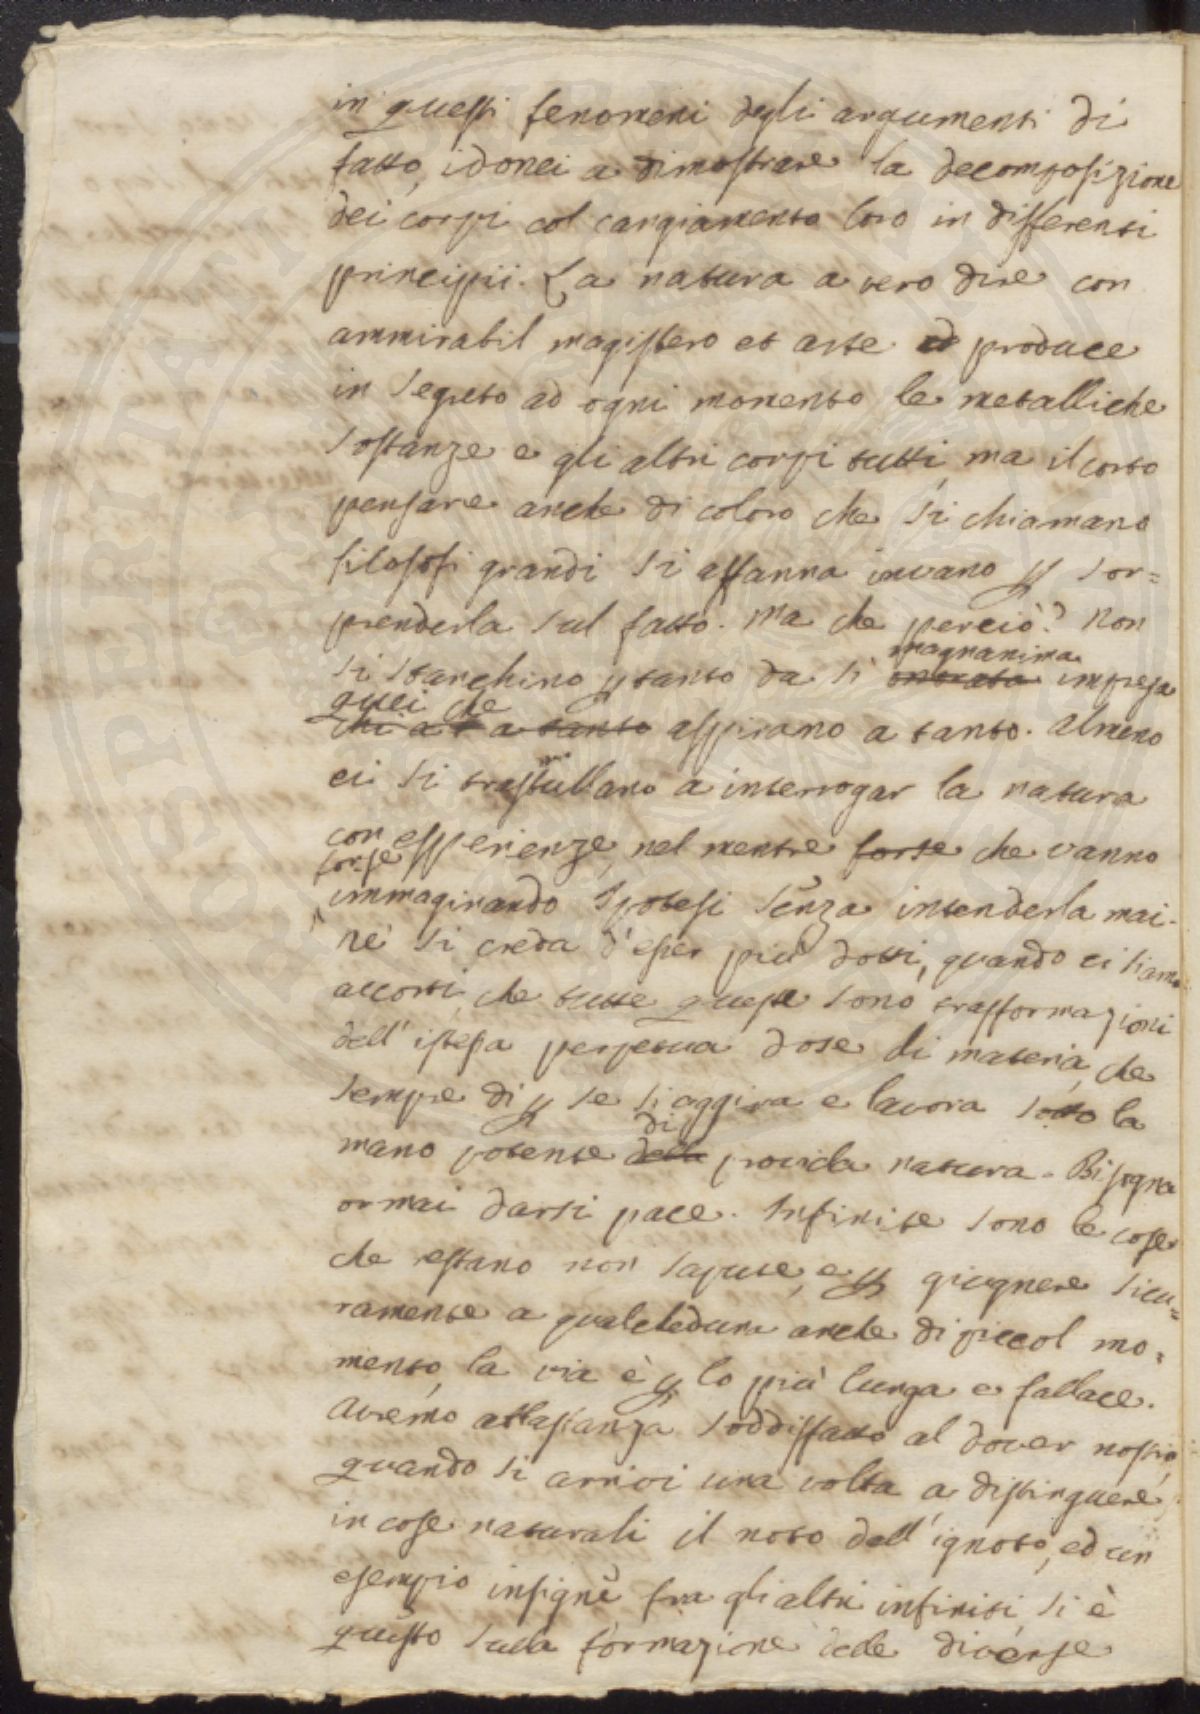 in questi fenomeni degli argumenti di
fatto, idonei a dimostrare la decomposizione
dei corpi col cangiamento loro in differenti
principii. La natura a vero dire con
ammirabil magistero et arte ed produce
in segreto ad ogni momento le metalliche
sostanze e gli altri corpi tutti, ma il corto
pensare anche di coloro che si chiamano
filosofi grandi si affanna invano p sor=
prenderla sul fatto. Ma che perciò? Non
magnanima
si stanchino ptanto da sì onorata impresa
quei che
chi a a tanto aspirano a tanto. Almeno
ei si trastullano a interrogar la natura
con esperienze, nel mentre forse che vanno
forse
immaginando Ipotesi senza intenderla mai.
nè si creda d'esser più dotti, quando ci siamo
accorti, che tutte queste sono trasformazioni
dell'istessa perpetua dose di materia, che
sempre di p se si aggira e lavora sotto la
di
mano potente della provida natura. Bisogna
ormai darsi pace. Infinite sono le cose
che restano non sapute, e p giugnere sicu=
ramente a qualcheduna anche di piccol mo=
mento, la via è p lo più lunga e fallace.
Avremo abbastanza soddisfatto al dover nostro,
quando si arrivi una volta a distinguere
in cose naturali il noto dall'ignoto, ed un
esempio insigne fra gli altri infiniti si è
questo sulla formazione delle diverse